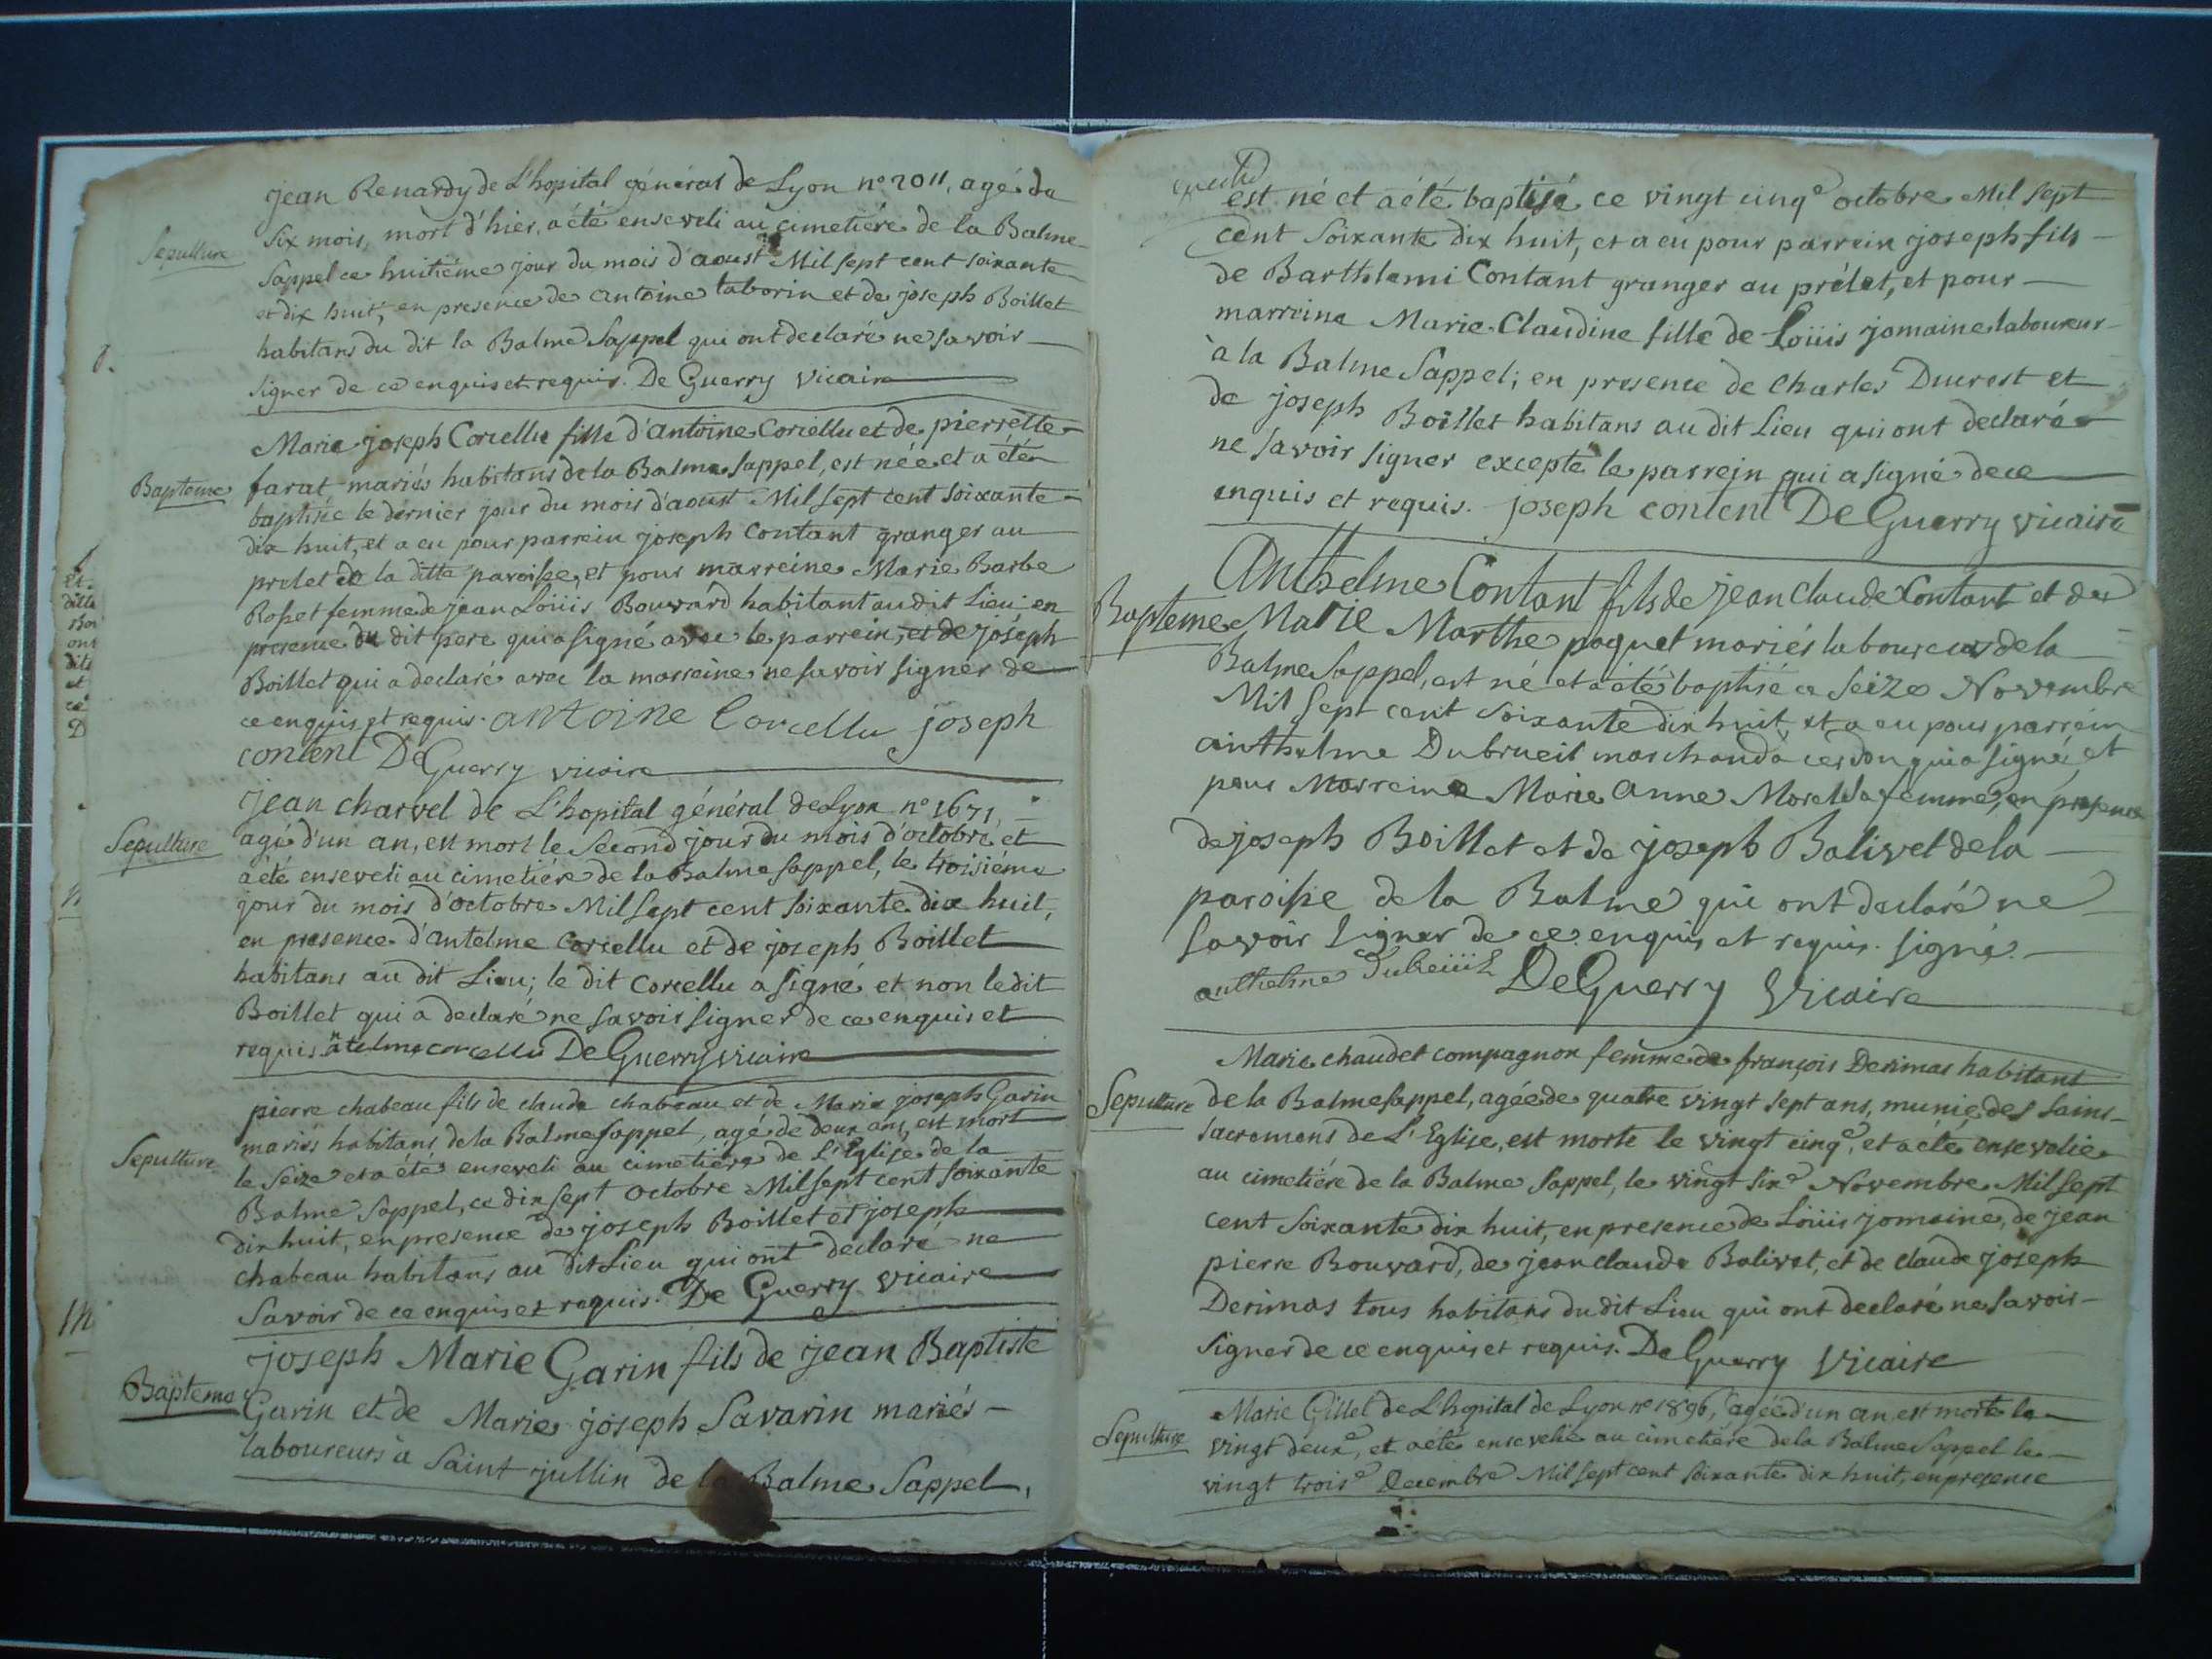 jean Renardy de L'hopital général de Lyon n° 2011, agé de
Sepulture
Six mois, mort d'hier, a été enseveli au cimetiére de la Balme
Sappel ce huitiéme jour du mois d'aoust Mil sept cent soixante
et dix huit, en presence de antoine taborin et de joseph Boillet
habitans du dit la Balme Sappel qui ont declaré ne savoir
signer de ce enquis et requis. De Guerry vicaire
Marie joseph Corcellu fille d'antoine Corcellu et de pierrette
Bapteme
farat mariés habitans de la Balme Sappel, est née et a été
baptisée le dernier jour du mois d'aoust Mil sept cent soixante
dix huit, et a eu pour parrein joseph Contant granger au
prelet de la ditte paroisse, et pour marreine Marie Barbe
Rosset femme de jean Loüis Bouvard habitant au dit Lieu en
presence du dit pere qui a signé avec le parrein, et de joseph
Boillet qui a declaré avec la marreine ne savoir signer de
ce enquis et requis. antoine Corcellu joseph
contént De Guerry vicaire
jean charvel de L'hopital général de Lyon n° 1671,
Sepulture
agé d'un an, est mort le Second jour du mois d'octobre, et
a été enseveli au cimetiére de la Balme sappel, le troisiéme
jour du mois d'octobre Mil sept cent soixante dix huit,
en presence d'antelme corcellu et de joseph Boillet
habitans au dit Lieu; le dit corcellu a signé et non le dit
Boillet qui a declaré ne savoir signer de ce enquis et
requis. antelme corcellu De Guerry vicaire
pierre chabeau fils de claude chabeau et de Marie joseph Garin
mariés habitans de la Balme sappel, agé de deux ans, est mort
Sepulture
le Seize et a été enseveli au cimetiére de L'Eglise de la
Balme Sappel, ce dix sept octobre Mil sept cent soixante
dix huit, en presence de joseph Boillet et joseph
chabeau habitans au dit Lieu qui ont declaré ne
savoir de ce enquis et requis. De Guerry vicaire
joseph Marie Garin fils de jean Baptiste
Bapteme
Garin et de Marie joseph Savarin mariés
laboureurs à Saint jullin de la Balme Sappel,
est né et a été baptisé ce vingt cinq.e octobre Mil sept
cent Soixante dix huit, et a eu pour parrein joseph fils
de Barthelemi Contant granger au prélet, et pour
marreine Marie Claudine fille de Loüis jomaine laboureur
à la Balme Sappel; en presence de Charles Ducrest et
de joseph Boillet habitans au dit Lieu qui ont declaré
ne savoir signer excepté le parrein qui a signé de ce
enquis et requis. joseph contént De Guerry vicaire
Anthelme Contant fils de jean claude Contant et de
Bapteme
Marie Marthe paquet mariés laboureurs de la
Balme Sappel, est né et a été baptisé ce seize Novembre
Mil Sept cent soixante dix huit, et a eu pour parrein
anthelme Dubrueil marchand a cerdon qui a signé, et
pour Marreine Marie anne Morel sa femme, en presence
de joseph Boillet et de joseph Balivet de la
paroisse de la Balme qui ont declaré ne
savoir signer de ce enquis et requis. signé.
anthelme Dubreüil De Guerry Vicaire
Marie chaudet compagnon femme de françois Derimas habitant
Sepulture
de la Balme sappel, agée de quatre vingt sept ans, munie des sains
sacremens de L'Eglise, est morte le vingt cinq.e, et a été ensevelie
au cimetiére de la Balme Sappel, le vingt six.e Novembre Mil sept
cent Soixante dix huit, en presence de Loüis jomaine, de jean
pierre Bouvard, de jean claude Balivet, et de claude joseph
Derimas tous habitans du dit Lieu qui ont declaré ne savoir
signer de ce enquis et requis. De Guerry Vicaire
Marie Gillet de L'hopital de Lyon n° 1896, agée d'un an, est morte le
Sepulture
vingt deux.e, et a été ensevelie au cimetiére de la Balme Sappel le
vingt trois.e Decembre Mil sept cent soixante dix huit, en presence